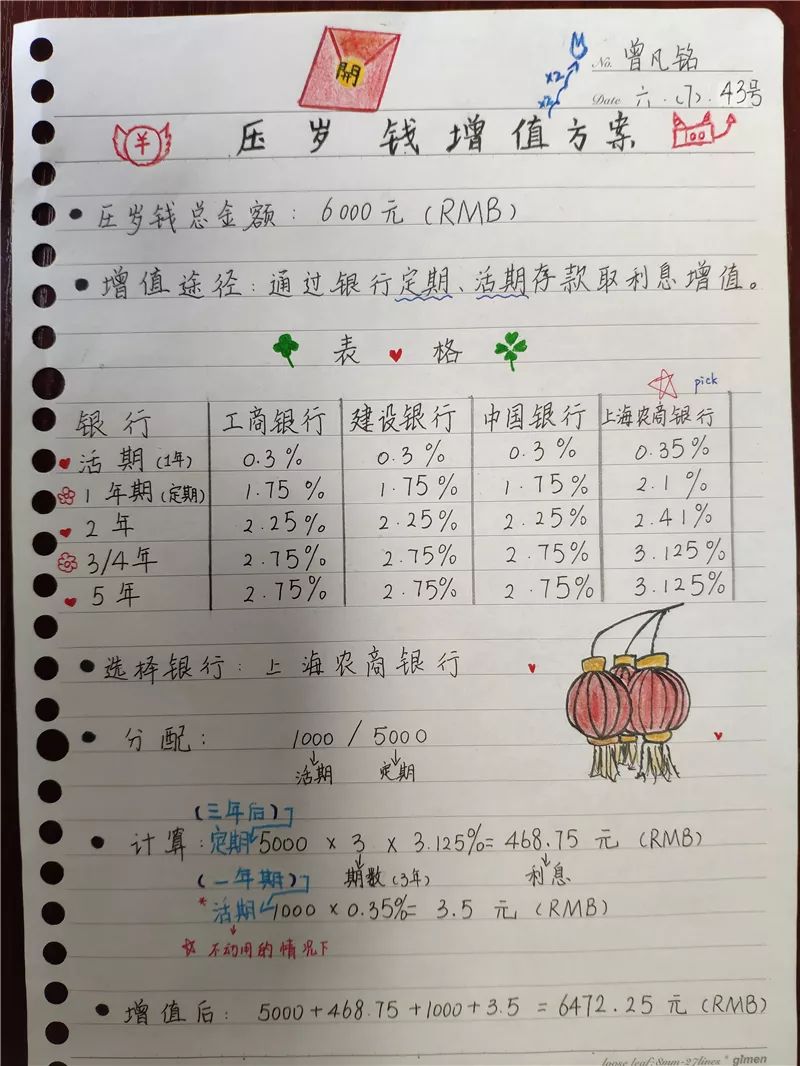 開
No. 曾凡铭
x2
x2
Date 六.(7).43号
¥ 压岁钱增值方案 100
• 压岁钱总金额: 6000元(RMB)
• 增值途径:通过银行定期、活期存款取利息增值。
表 格
pick
银行 工商银行 建设银行 中国银行 上海农商银行
活期(1年) 0.3% 0.3% 0.3% 0.35%
1年期(定期) 1.75% 1.75% 1.75% 2.1%
2年 2.25% 2.25% 2.25% 2.41%
3/4年 2.75% 2.75% 2.75% 3.125%
5年 2.75% 2.75% 2.75% 3.125%
• 选择银行: 上海农商银行
• 分配: 1000 / 5000
活期 定期
(三年后)
• 计算:定期 5000 × 3 × 3.125%= 468.75 元 (RMB)
(一年期) 期数(3年) 利息
*活期 1000 × 0.35%= 3.5 元 (RMB)
不动用的情况下
• 增值后: 5000+468.75+1000+3.5 =6472.25 元(RMB)
loose leaf:8mm-27lines * glmen